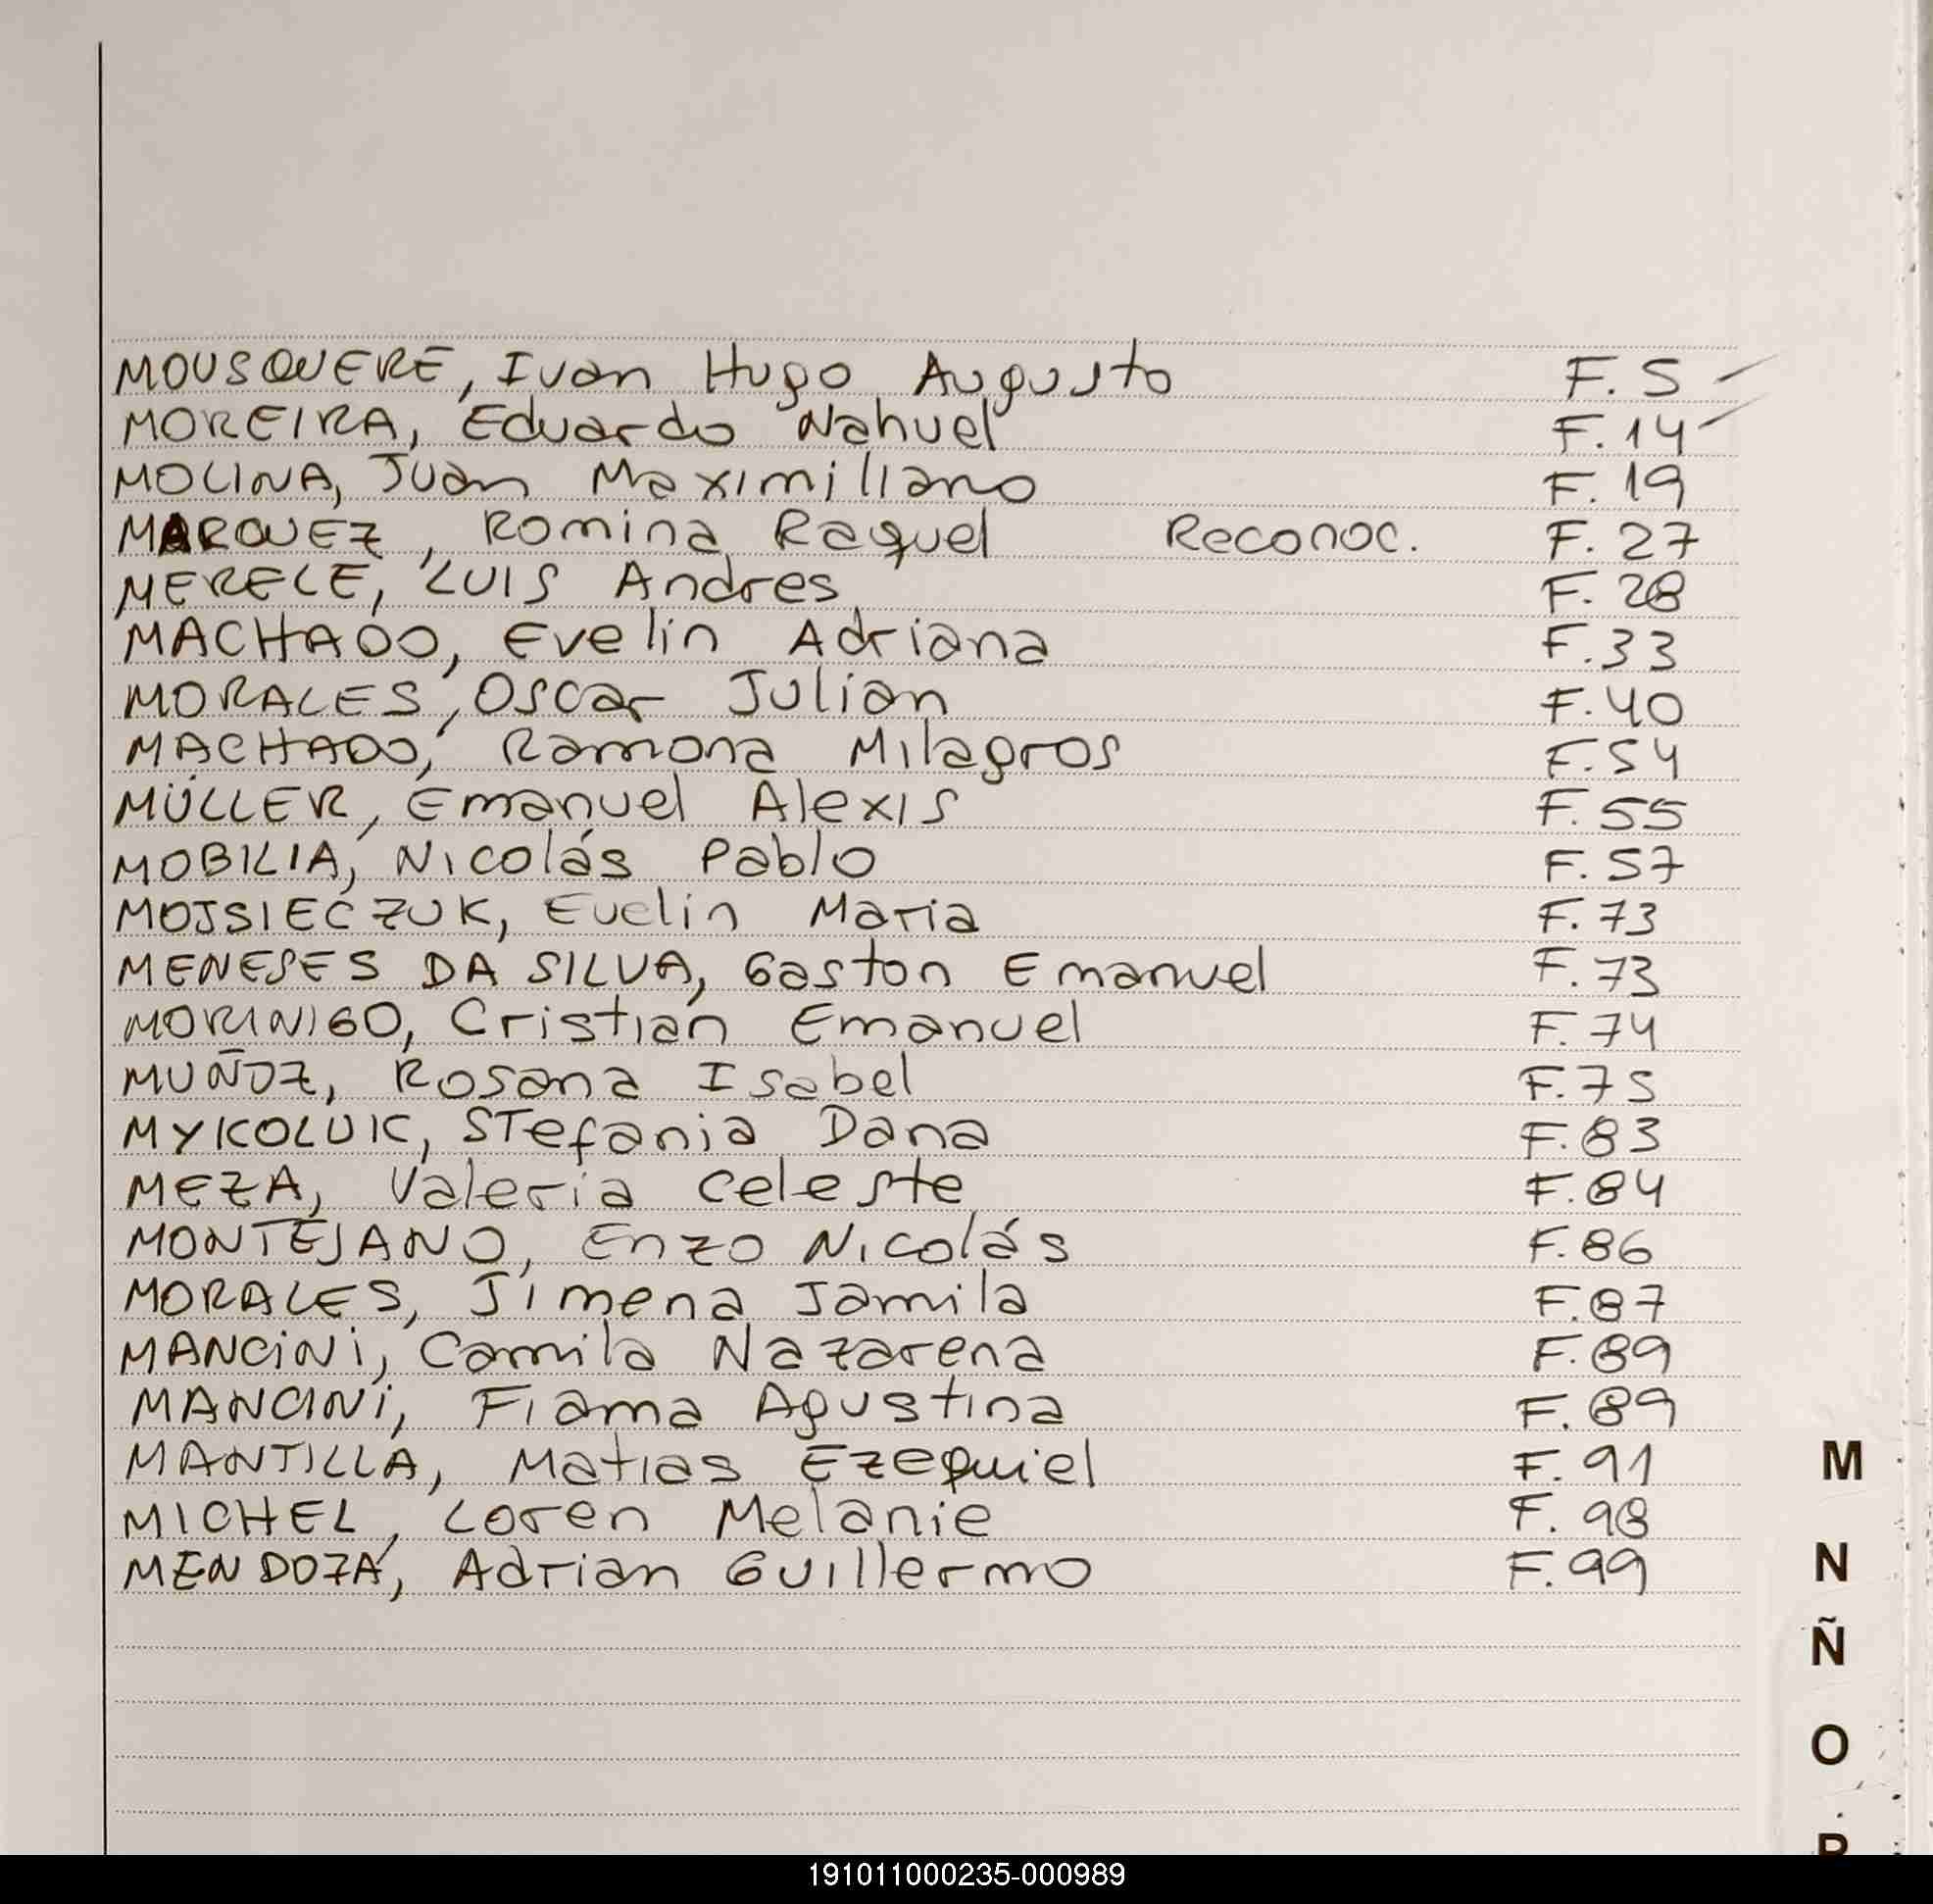 MOUSQUERE, Ivan Hugo Augusto F. 5
MOREIRA, Eduardo Nahuel F. 14
MOLINA, Juan Maximiliano F. 19
MARQUEZ, Romina Raquel Reconoc. F. 27
MERELE, LUIS Andres F. 28
MACHADO, Evelin Adriana F. 33
MORALES, Oscar Julian F. 40
MACHADO, Ramona Milagros F. 54
MÜLLER, Emanuel Alexis F. 55
MOBILIA, Nicolás Pablo F. 57
MOJSIECZUK, Evelin Maria F. 73
MENESES DA SILVA, Gaston Emanuel F. 73
MORINIGO, Cristian Emanuel F. 74
MUÑOZ, Rosana Isabel F. 75
MYKOLUK, Stefania Dana F. 83
MEZA, Valeria Celeste F. 84
MONTEJANO, Enzo Nicolás F. 86
MORALES, Jimena Jamila F. 87
MANCINI, Camila Nazarena F. 89
MANCINI, Fiama Agustina F. 89
MANTILLA, Matias Ezequiel F. 91
MICHEL, Loren Melanie F. 98
MENDOZA, Adrian Guillermo F. 99
M
N
Ñ
O
P
191011000235-000989